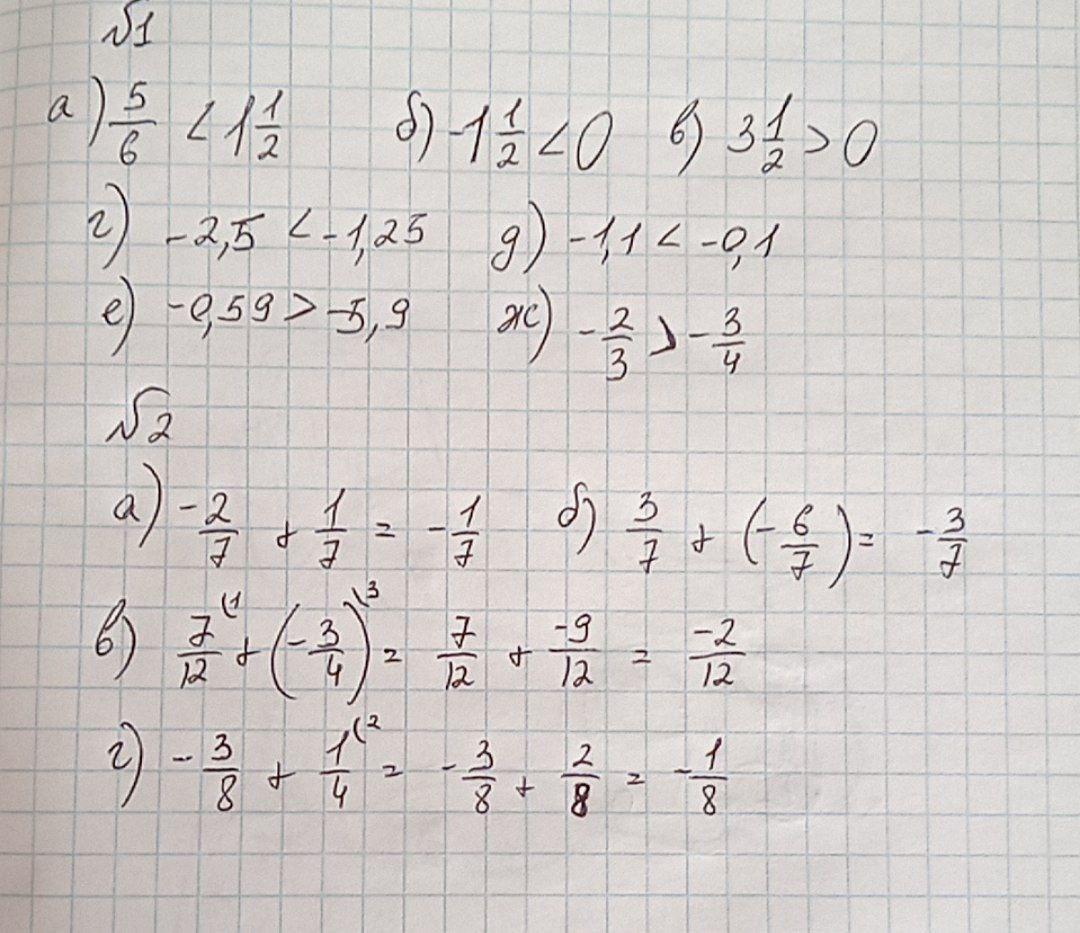 №1
а) 5/6 < 1 1/2 б) -1 1/2 < 0 в) 3 1/2 > 0
г) -2,5 < -1,25 д) -1,1 < -0,1
е) -0,59 > -5,9 ж) -2/3 > -3/4
№2
а) -2/7 + 1/7 = -1/7 б) 3/7 + (-6/7) = -3/7
в) 7/12 \1 + (-3/4) \3 = 7/12 + -9/12 = -2/12
г) -3/8 + 1/4 \2 = -3/8 + 2/8 = -1/8